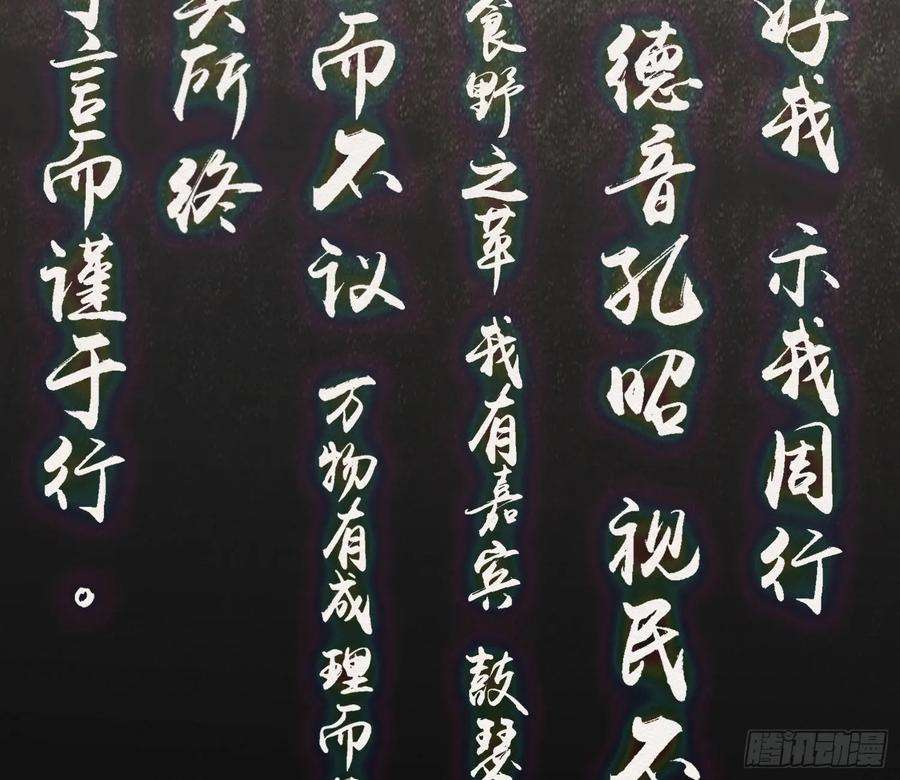 好我 示我周行
德音孔昭 视民不
食野之苹 我有嘉宾 鼓瑟
而不议 万物有成理而
所终
言而谨于行。
腾讯动漫